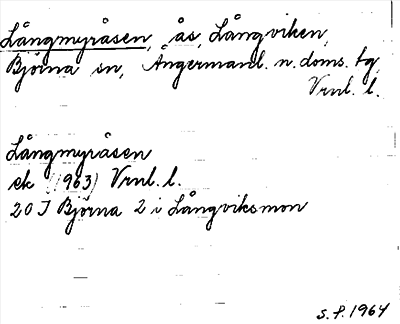 Långmyråsen, ås, Långviken,
Björna sn, Ångermanl. n. doms. tg
Vrnl. l.
Långmyråsen
ek (1963) Vrnl. l.
20 I Björna 2 i Långviksmon
S. P. 1964